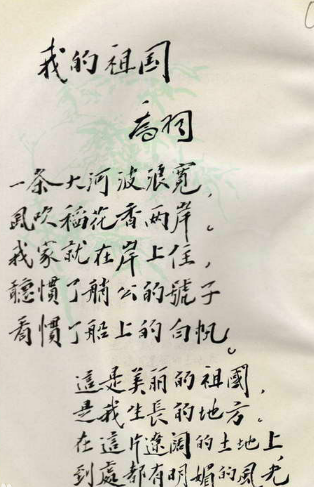 我的祖国
乔羽
一条大河波浪寬，
风吹稻花香两岸。
我家就在岸上住，
聽慣了艄公的號子
看慣了船上的白帆。
這是美丽的祖國，
是我生長的地方。
在這片遼阔的土地上
到處都有明媚的风光